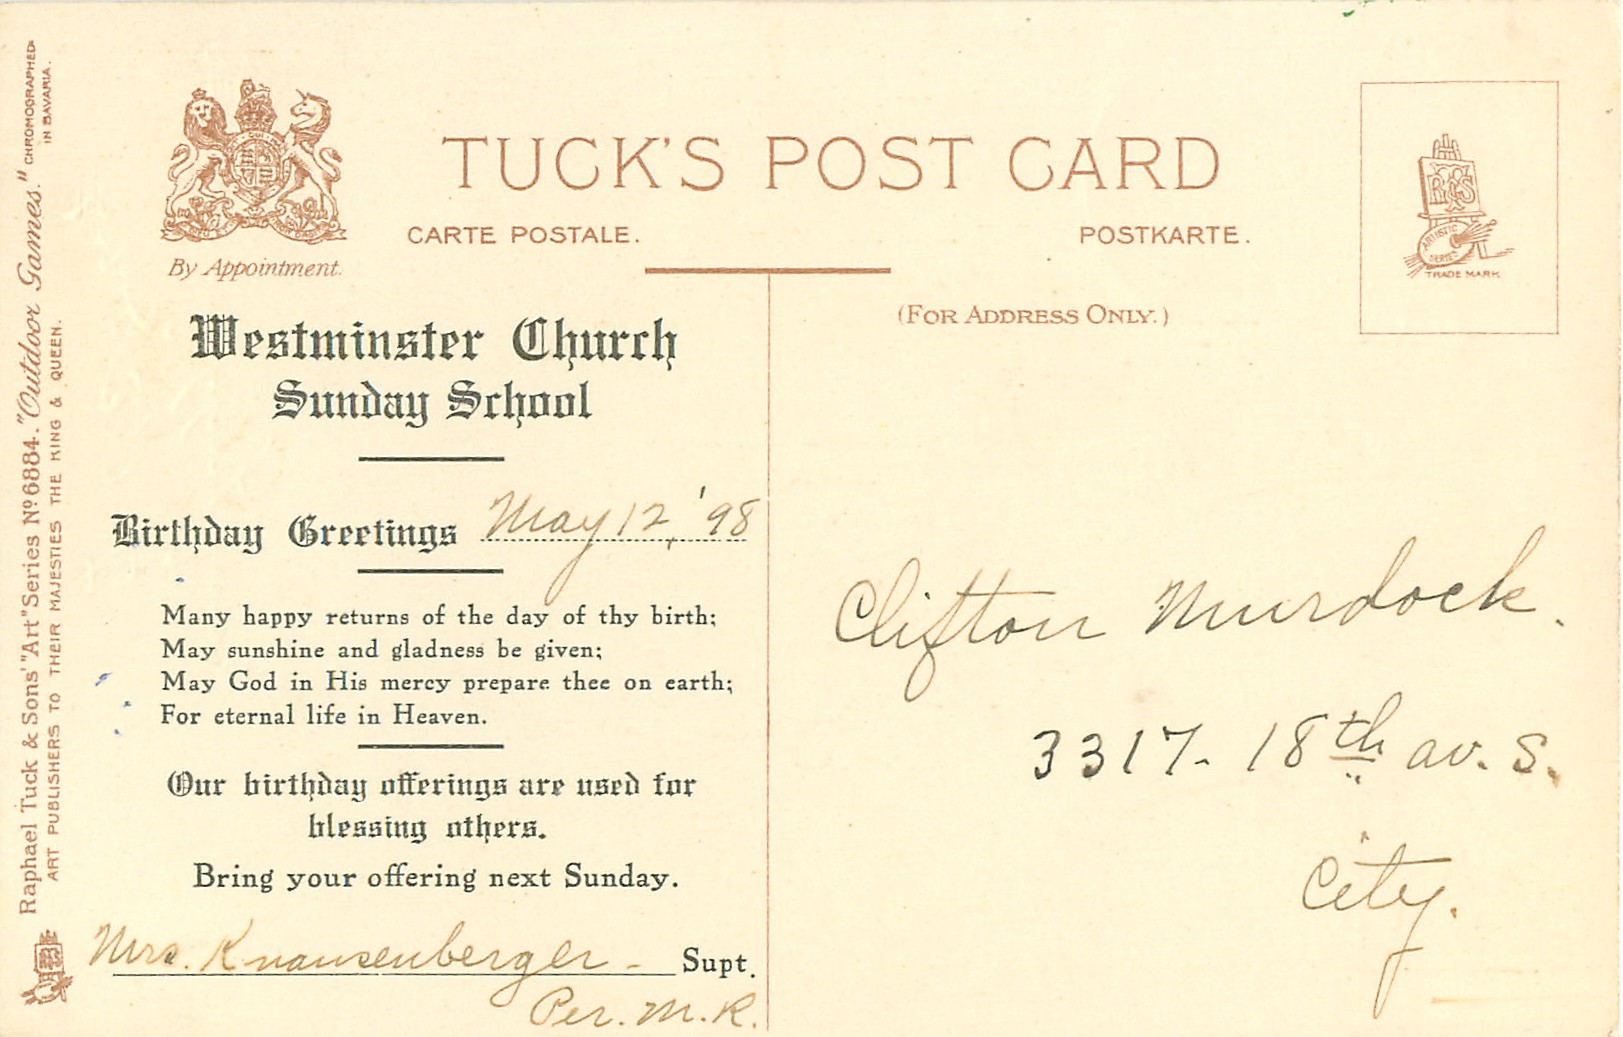 TUCK'S POST CARD
CARTE POSTALE.
POSTKARTE.
By Appointment.
(FOR ADDRESS ONLY.)
R T & S
ARTISTIC
SERIES
TRADE MARK
Raphael Tuck & Sons' "Art" Series Nº 6884. "Outdoor Games." "CHROMOGRAPHED
IN BAVARIA.
ART PUBLISHERS TO THEIR MAJESTIES THE KING & QUEEN.
Westminster Church
Sunday School
Birthday Greetings May 12, '98
Many happy returns of the day of thy birth;
May sunshine and gladness be given;
May God in His mercy prepare thee on earth;
For eternal life in Heaven.
Our birthday offerings are used for
blessing others.
Bring your offering next Sunday.
Mrs. Knansenberger - Supt.
Per. M. R.
Clifton Murdock.
3317- 18th av. S.
City.